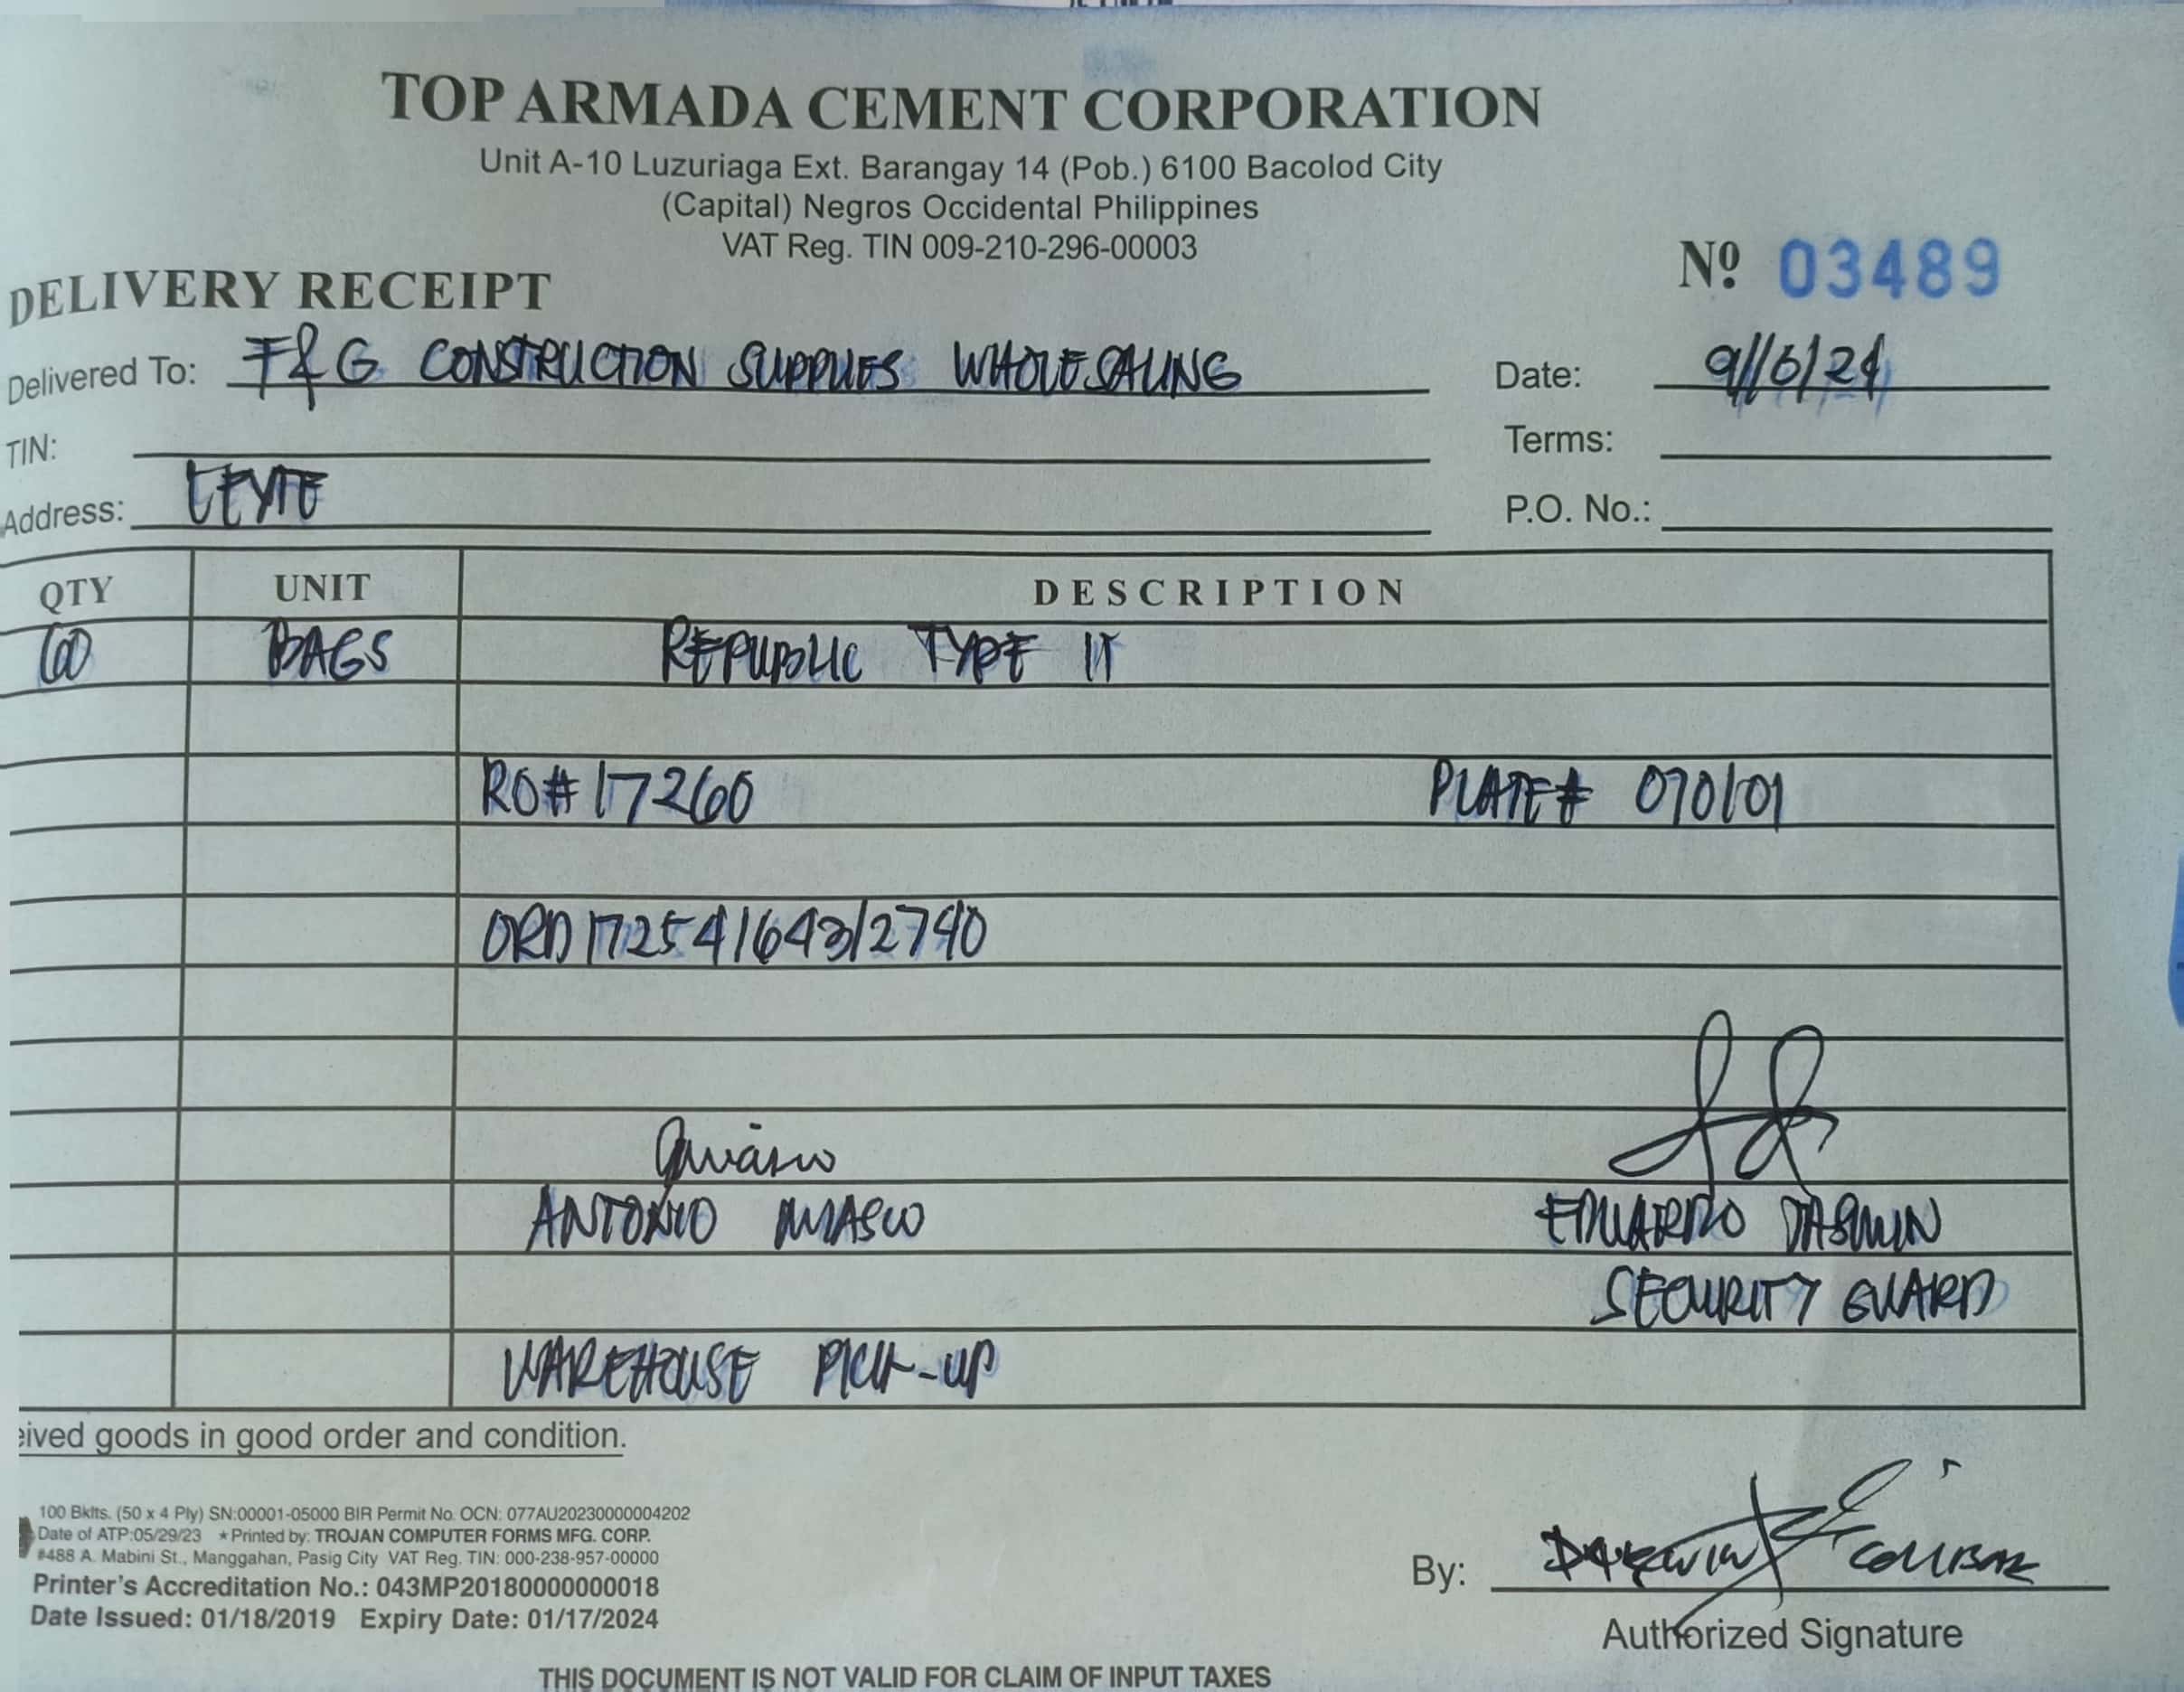 TOP ARMADA CEMENT CORPORATION
Unit A-10 Luzuriaga Ext. Barangay 14 (Pob.) 6100 Bacolod City
(Capital) Negros Occidental Philippines
VAT Reg. TIN 009-210-296-00003
DELIVERY RECEIPT
Nº 03489
Delivered To: F&G CONSTRUCTION SUPPLIES WHOLESALING
Date: 9/16/24
TIN:
Terms:
Address: LEYTE
P.O. No.:
QTY UNIT DESCRIPTION
BAGS REPUBLIC TYPE
RO# 17260 PLATE# 070101
ORD 17254164312740
ANTONIO EDUARDO
SECURITY GUARD
WAREHOUSE PICK-UP
eived goods in good order and condition.
100 Bklts. (50 x 4 Ply) SN:00001-05000 BIR Permit No. OCN: 077AU20230000004202
Date of ATP:05/29/23 ★Printed by: TROJAN COMPUTER FORMS MFG. CORP.
#488 A. Mabini St., Manggahan, Pasig City VAT Reg. TIN: 000-238-957-00000
Printer's Accreditation No.: 043MP20180000000018
Date Issued: 01/18/2019 Expiry Date: 01/17/2024
By: DARWIN
Authorized Signature
THIS DOCUMENT IS NOT VALID FOR CLAIM OF INPUT TAXES